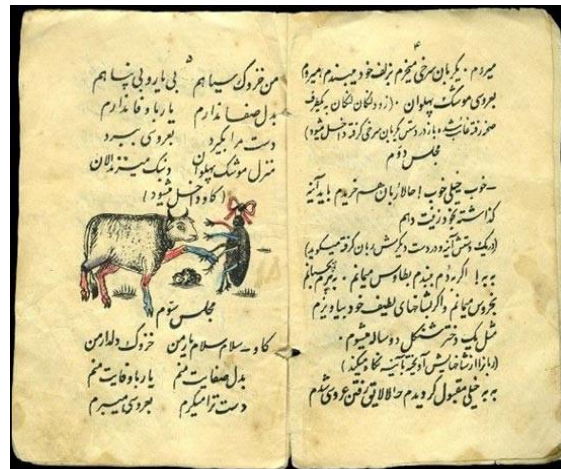 ۴
میروم . یکربان سرخی میخرم بزلف خود میبندم میروم
بعروسی موشک پهلوان . (زود لنگان لنگان بیکطرف
صحنه رفته غائب شده و باز در دستش ربان سرخی گرفته داخل میشود)
مجلس دوّم
– خوب خیلی خوب ! حالا ربان هم خریدم باید آئینه
گذاشته بخود زینت دهم
(در یک دستش آئینه و در دست دیگرش ربان گرفته میگوید)
به به ! اگر دُم ببندم بطاوس میمانم .
بخروس میمانم و اگر بشاخهای لطیف خود بیاویزم
مثل یک دختر خوشگل دو ساله میشوم .
(ربان را از شاخهایش آویخته بآئینه نگاه میکند)
به به خیلی مقبول گردیدم حالا لایق رفتن عروسی شدم
۵
من خزوک سیاهم بی یار و بی پناهم
بدل صفا ندارم یار با وفا ندارم
دست مرا بگیرد بعروسی ببرد
منزل موشک پهلوان دنبک میزند الان
(گاو داخل میشود)
مجلس سوّم
گاو – سلام سلام یار من خزوک دلدار من
بدل صفایت منم یار با وفایت منم
دست ترا میگیرم بعروسی میبرم